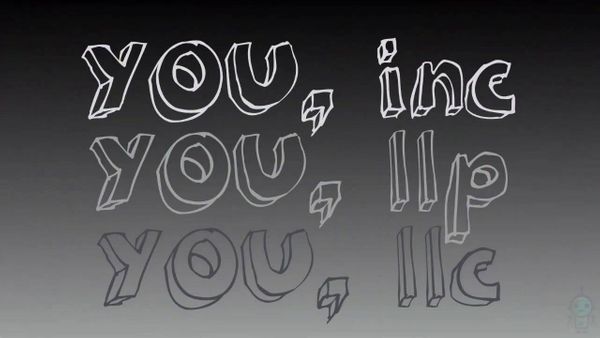 YOU, inc
YOU, llp
YOU, llc